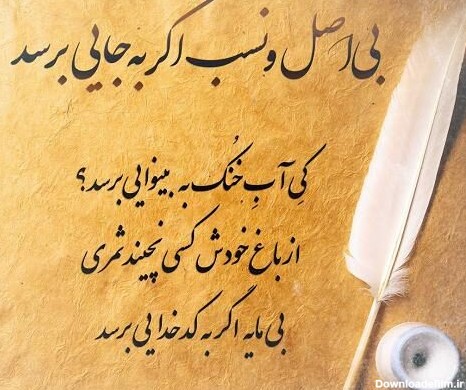 بی اصل و نسب اگر به جایی برسد
کِی آبِ خُنک به بینوایی برسد؟
از باغ خودش کسی نچیند ثمری
بی مایه اگر به کدخدایی برسد